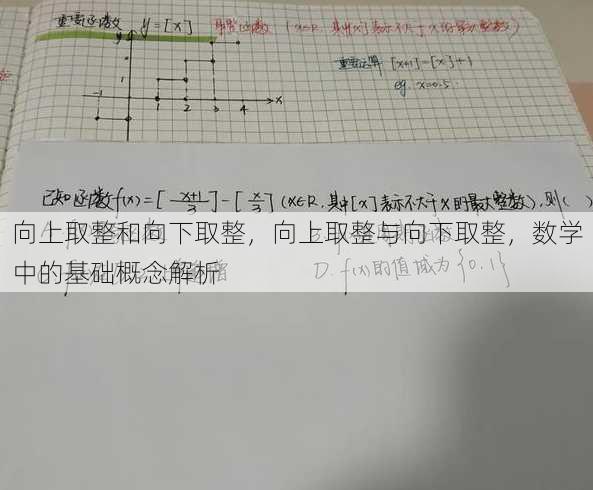 重要函数 y=[x] 取整函数 (x∈R, 其中[x]表示不大于x的最大整数)
重要运算 [x+1]=[x]+1
eg. x=0.5.
y
1
-1 1 2 3 4 x
已知函数f(x)=[x+1/3]-[x/3](x∈R,其中[x]表示不大于x的最大整数),则( )
向上取整和向下取整，向上取整与向下取整，数学
中的基础概念解析
D. f(x)的值域为{0.1}